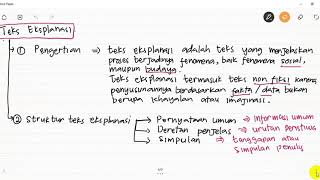 Teks Eksplanasi
① Pengertian ⇒ teks eksplanasi adalah teks yang menjelaskan
proses terjadinya fenomena, baik fenomena sosial,
maupun budaya.
Teks eksplanasi termasuk teks non fiksi karena
penyusunannya berdasarkan fakta / data bukan
berupa khayalan atau imajinasi.
② Struktur teks eksplanasi → Pernyataan umum ⇒ informasi umum
→ Deretan penjelas ⇒ urutan peristiwa
→ Simpulan ⇒ tanggapan atau
simpulan penulis